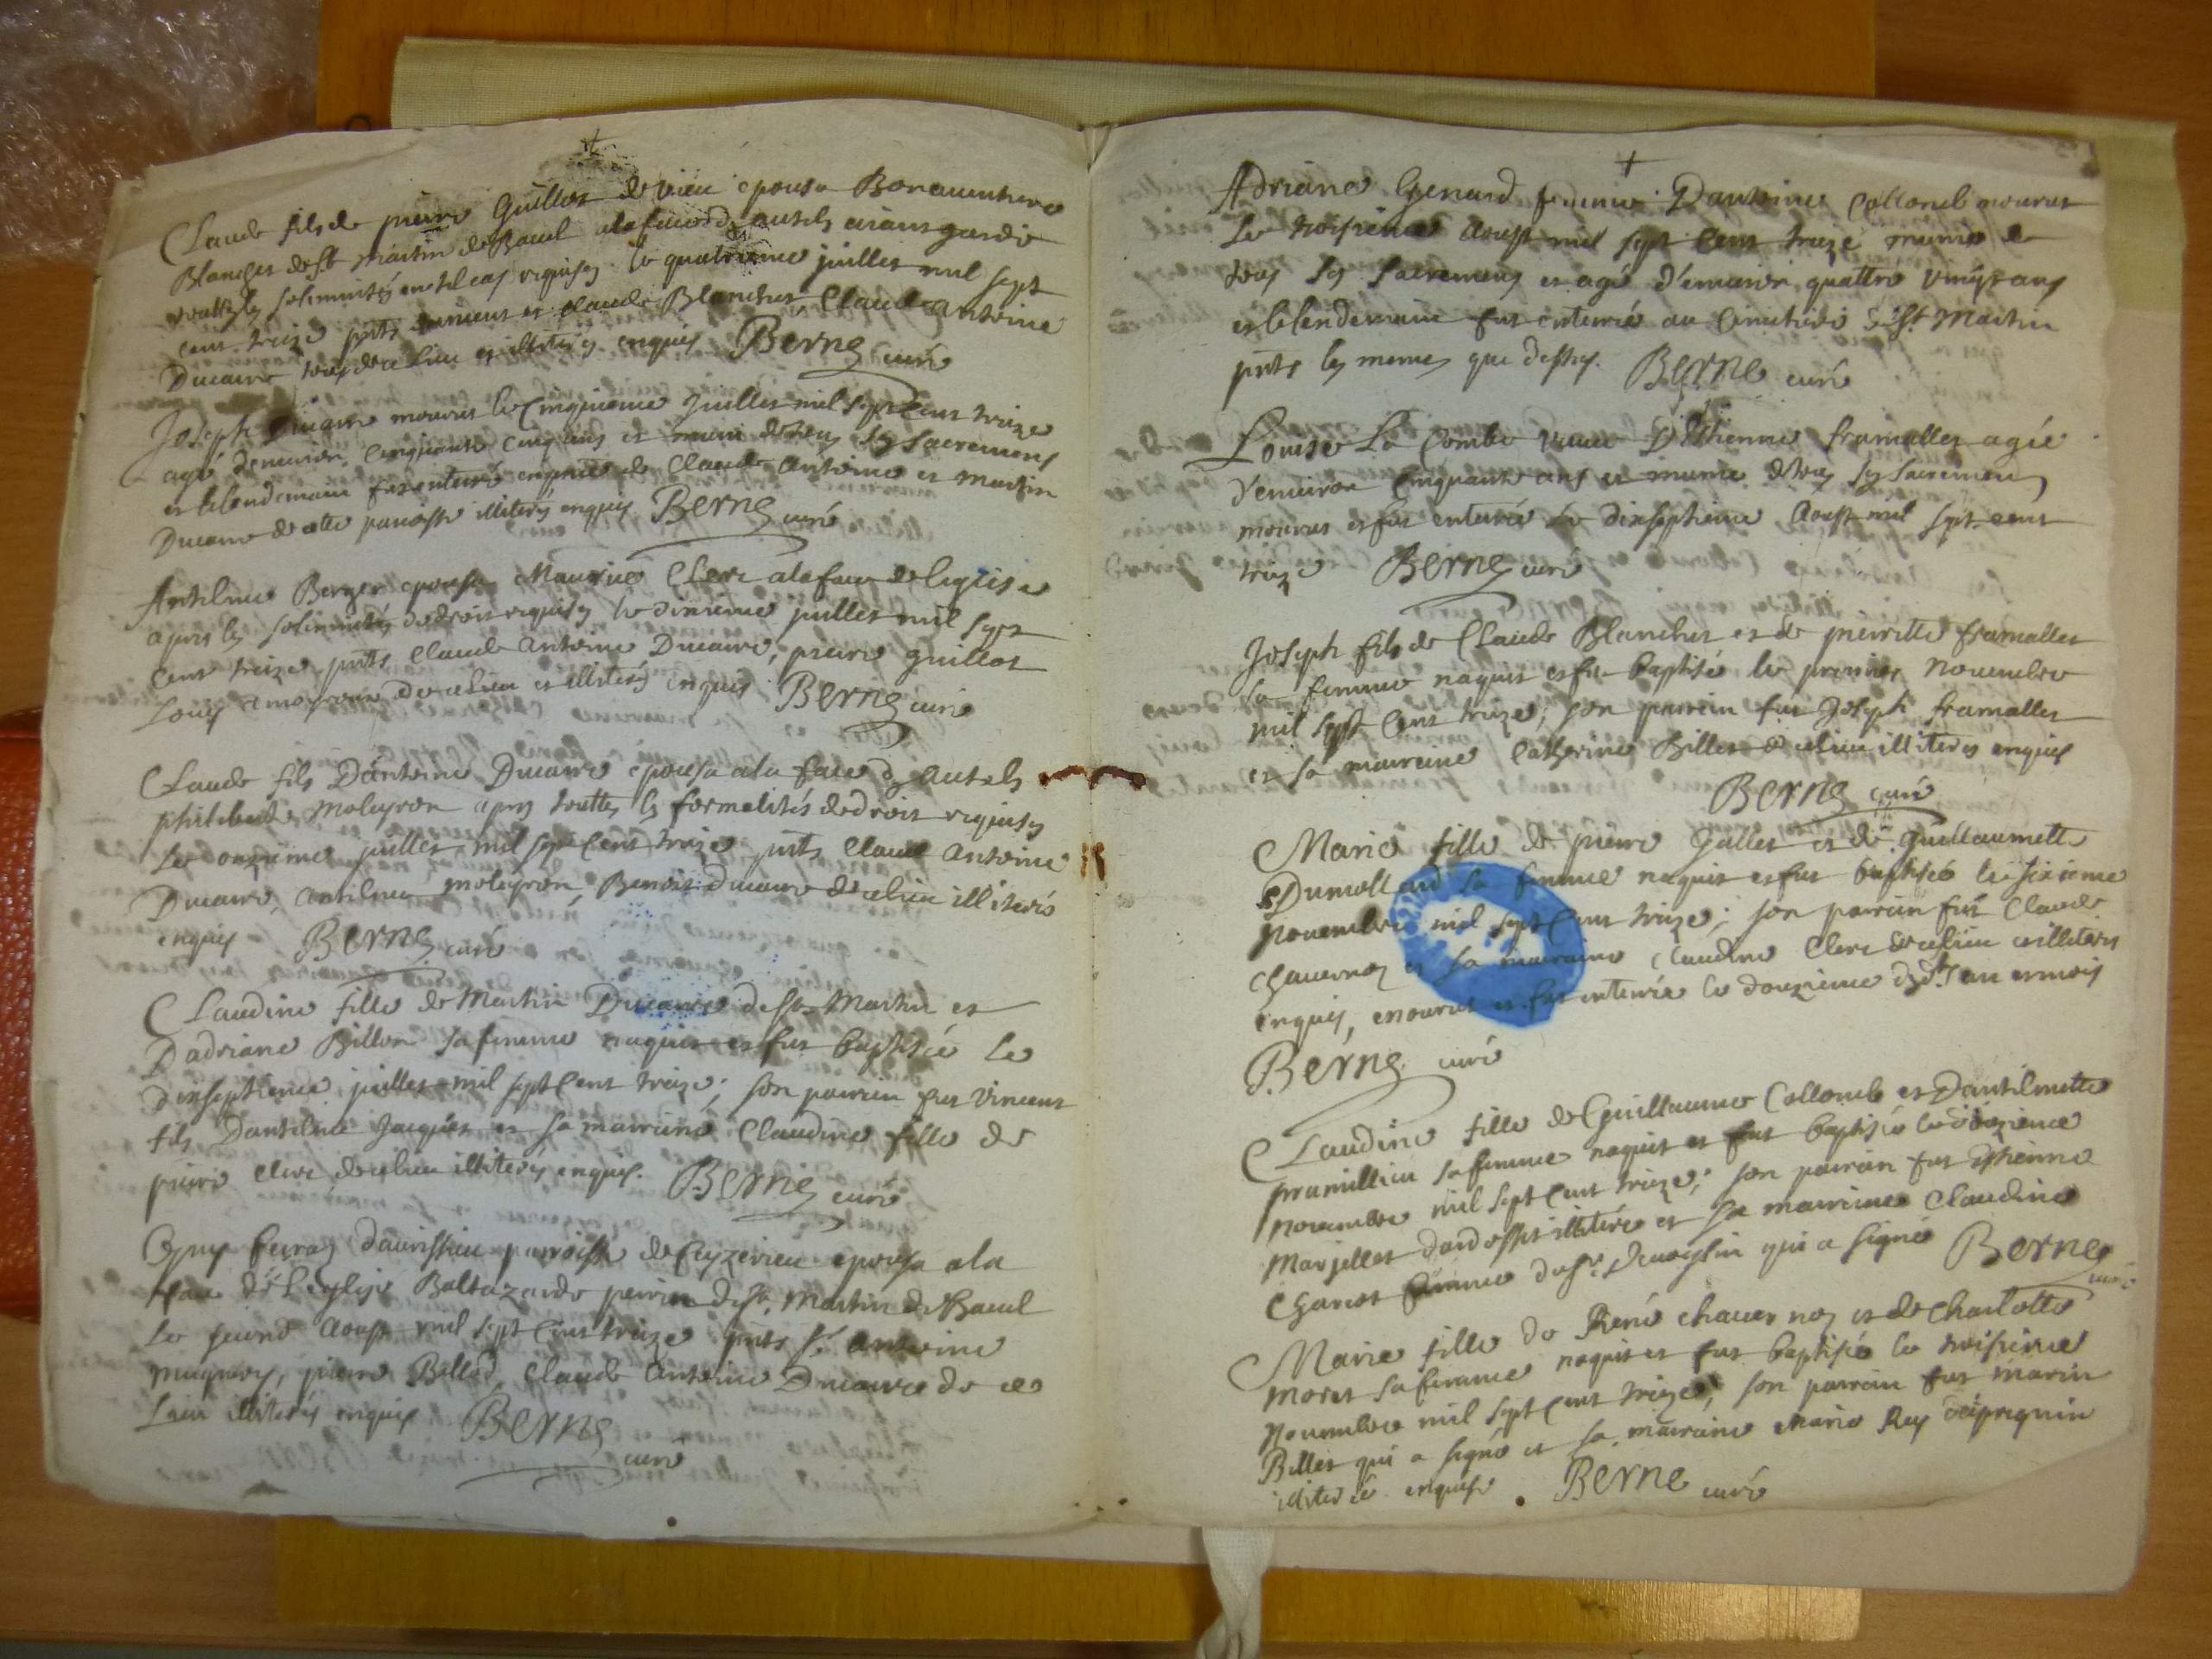 Claude fils de pierre Guillot de vieu epousa Bonauenture
Blanchet de st martin de Bauel a la face des autels aiant gardé
touttes les solemnités en tel cas requises le quatrieme juillet mil sept
cent treize pnts et Claude Blanchet Claude Antoine
Ducaire tous de ce lieu illiterés enquis Berne curé
Joseph Ducaire mourut le cinquieme juillet mil sept cent treize
agé denuiron cinquante cinq ans et muni de tous ses sacremens
et le lendemain fut enterré en pnce de Claude Antoine et martin
Ducaire de cette paroisse illiterés enquis Berne curé
Antelme Berger epousa Maurise Clerc a la face de leglise
apres les solemnités de droit requises le dixieme juillet mil sept
cent treize pnts Claude Antoine Ducaire, pierre guillot
Louis de ce lieu et illiterés enquis Berne curé
Claude fils Dantoine Ducaire epousa a la face des autels
philiberte Moleyron apres touttes les formalités de droit requises
Le onzieme juillet mil sept cent treize pnts Claude Antoine
Ducaire, antelme moleyron, Benoit ducaire de ce lieu illiterés
enquis Berne curé
Claudine fille de Martin Ducaire de st Martin et
Dadriane Billon sa femme naquit et fut baptisée Le
dixseptieme juillet mil sept cent treize; son parrain fut vincent
fils Dantelme Jacquet et sa marraine Claudine fille de
pierre clerc de ce lieu illiterés enquis. Berne curé
paroisse de Ceyzerieu epousa a la
face de l'eglise Baltazarde perrin de st. Martin de Bauel
Le second Aoust mil sept cent treize pnts sr. antoine
pierre Billod, Claude Antoine Ducaire de ce
Lieu illiterés enquis Berne
curé
Adriane Genard femme Dantoine Collomb mourut
Le troisieme Aoust mil sept cent treize munie de
tous ses sacremens et agée d'enuiron quattre vingt ans
et le lendemain fut enterrée au cimetiere de st. Martin
pnts les memes que dessus. Berne curé
Louise La Combe veuue D'Etienne framallet agée
d'enuiron cinquante ans et munie de tous ses sacremens
mourut et fut enterrée le dixseptieme Aoust mil sept cent
treize Berne curé
Joseph fils de Claude Blanchet et de pierrette framallet
sa femme naquit et fut baptisé le premier Nouembre
mil sept cent treize; son parrain fut Joseph framallet
et sa marraine Catherine Billet de ce lieu illiterés enquis
Berne curé
Marie fille de pierre Gallet et de guillaumette
Dumollard sa femme naquit et fut baptisée le sixieme
Nouembre mil sept cent treize; son parrain fut Claude
Chauernoz et sa marraine Claudine Clerc de ce lieu illiterés
enquis, mourut et fut enterrée le douzieme desdts an et mois
Berne curé
Claudine fille de Guillaume Collomb et Dantelmette
pramillieu sa femme naquit et fut baptisée le
Nouembre mil sept cent treize; son parrain fut Etienne
Marjollet illiteré et sa marraine Claudine
Chariot femme du sr. qui a signé Berne
curé
Marie fille de René chauernoz et de Charlotte
Moret sa femme naquit et fut baptisée le troisieme
Nouembre mil sept cent treize; son parrain fut marin
Billet qui a signé et sa marraine Marie Rey
illiterée enquise. Berne curé